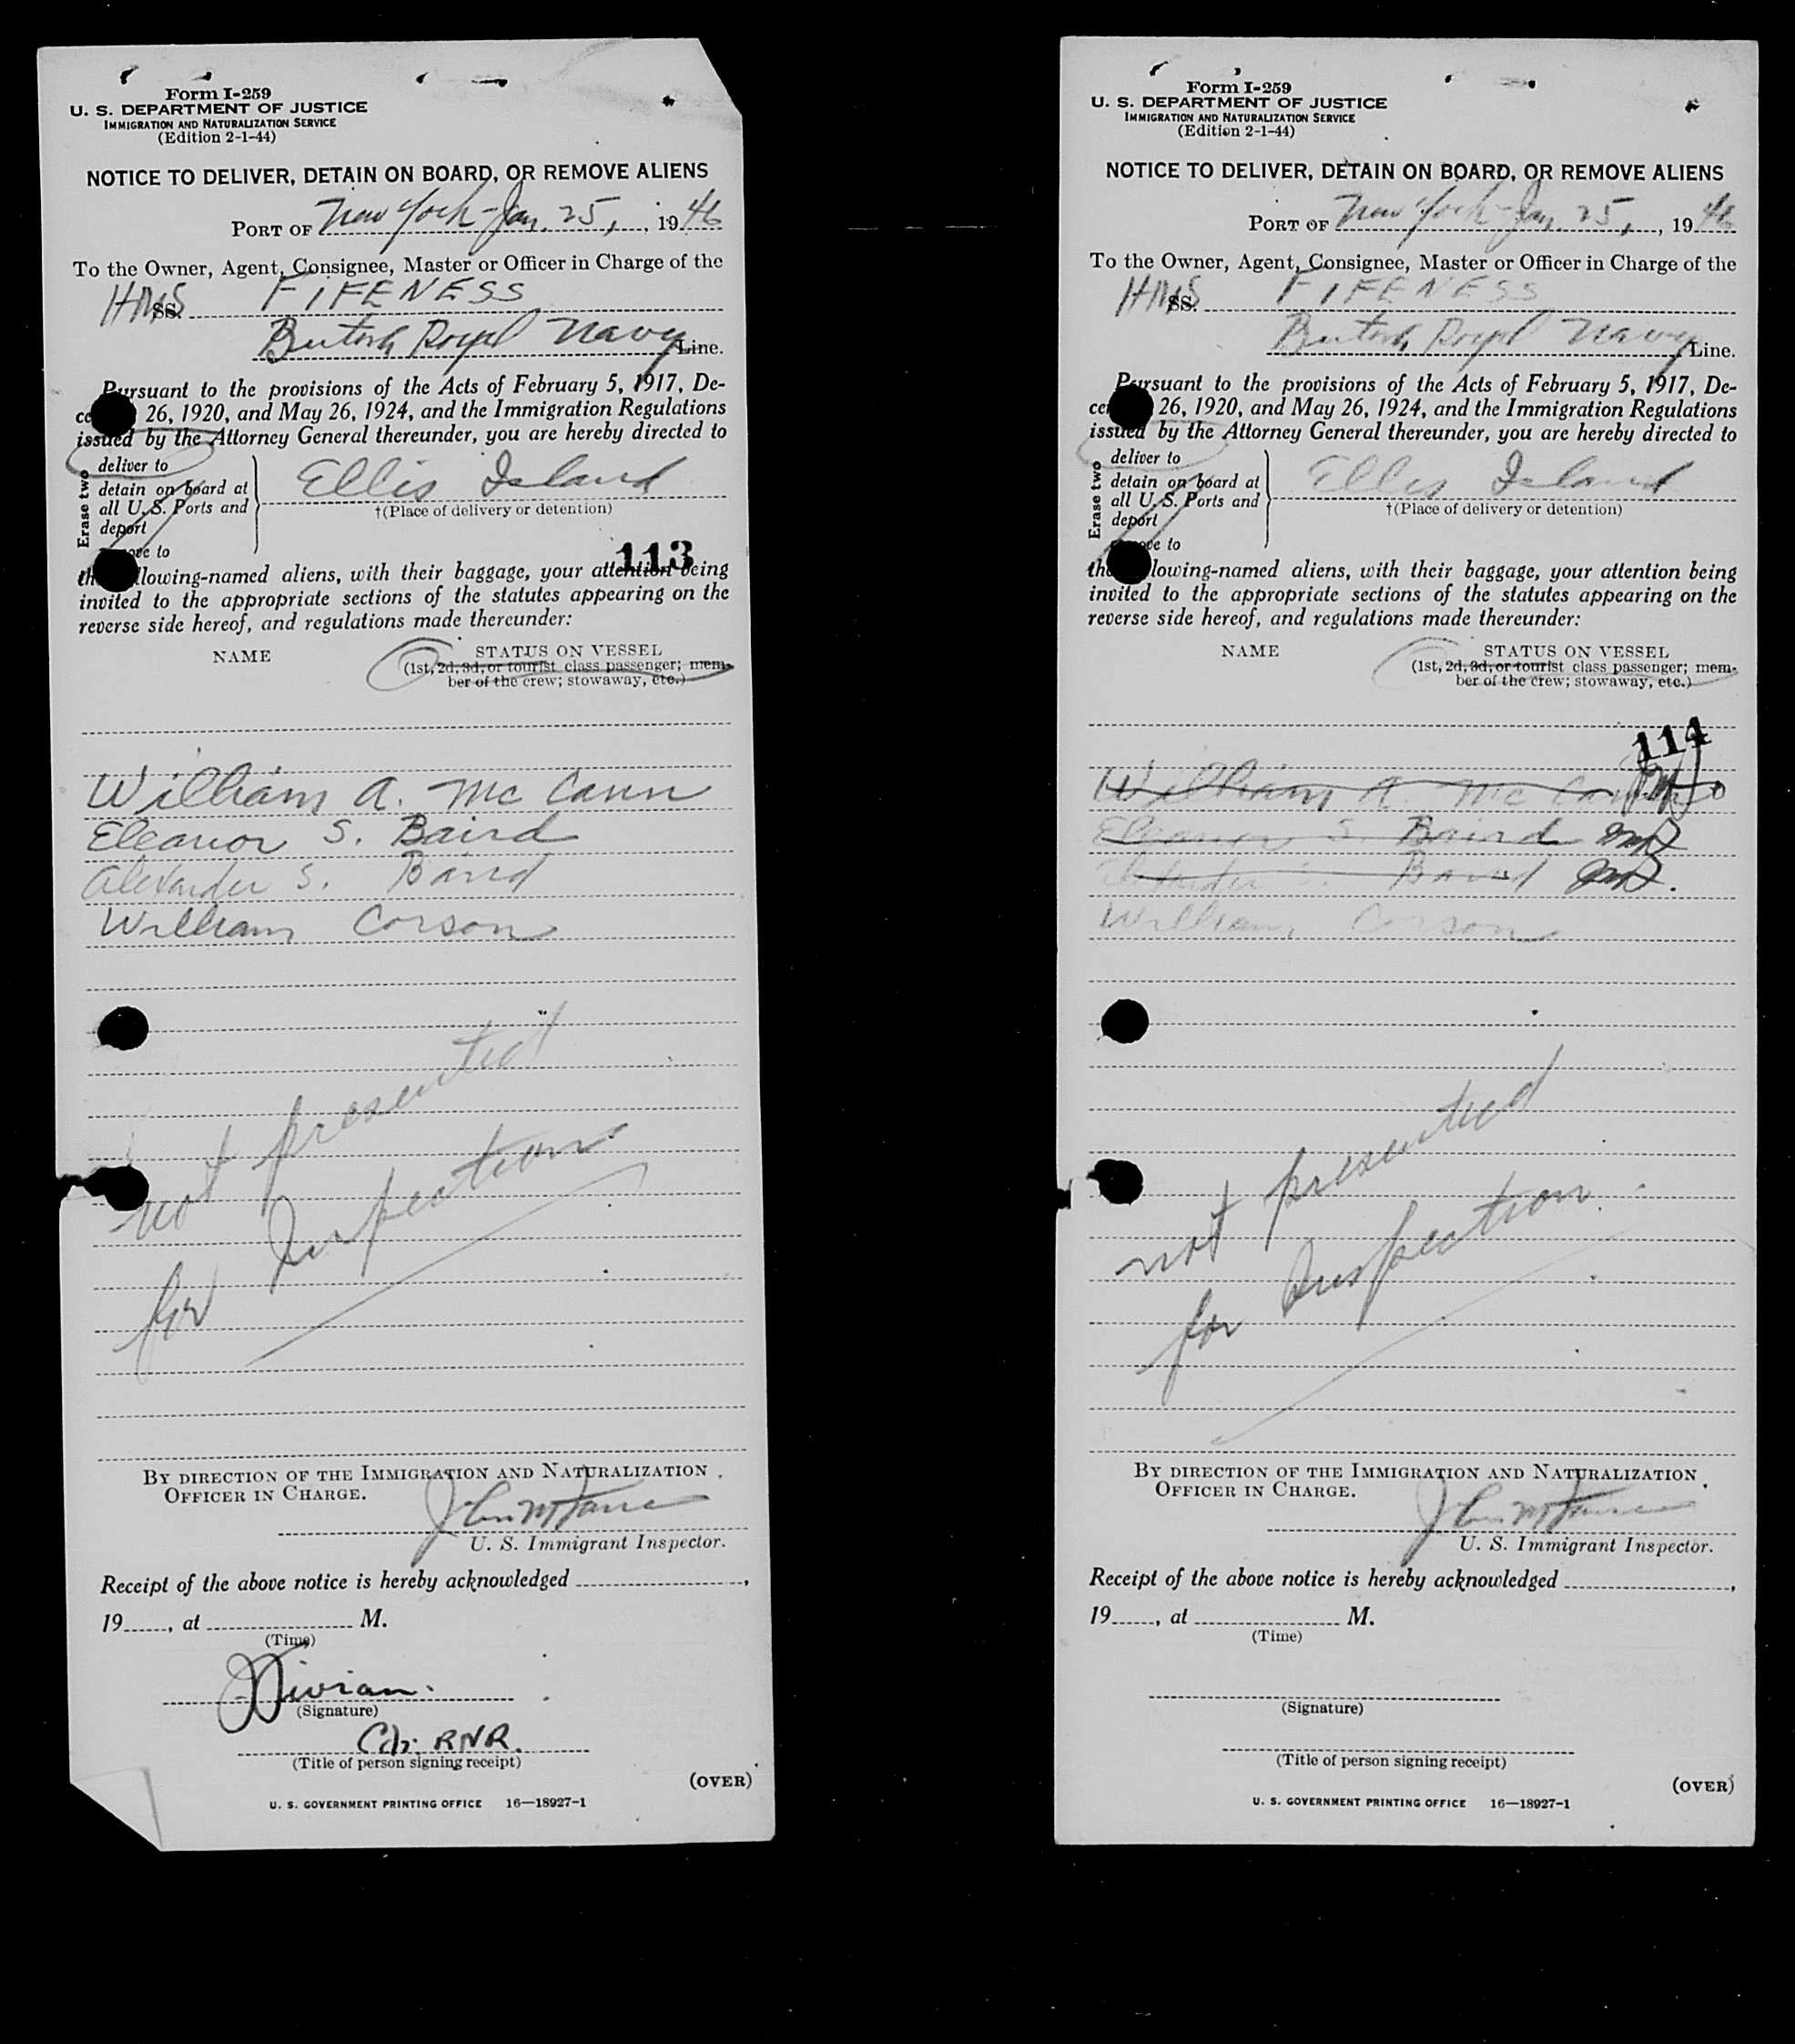 Form I-259
U. S. DEPARTMENT OF JUSTICE
IMMIGRATION AND NATURALIZATION SERVICE
(Edition 2-1-44)
NOTICE TO DELIVER, DETAIN ON BOARD, OR REMOVE ALIENS
PORT OF New York - Jan. 25, , 1946
To the Owner, Agent, Consignee, Master or Officer in Charge of the
HMS SS. FIFENESS
British Royal Navy Line.
Pursuant to the provisions of the Acts of February 5, 1917, De-
ce 26, 1920, and May 26, 1924, and the Immigration Regulations
issued by the Attorney General thereunder, you are hereby directed to
Erase two
deliver to
detain on board at
all U. S. Ports and
deport
ove to
Ellis Island
†(Place of delivery or detention)
113
the lowing-named aliens, with their baggage, your attention being
invited to the appropriate sections of the statutes appearing on the
reverse side hereof, and regulations made thereunder:
NAME
STATUS ON VESSEL
(1st, 2d, 3d, or tourist class passenger; mem-
ber of the crew; stowaway, etc.)
William A. McCann
Eleanor S. Baird
Alexander S. Baird
William Corson
not presented
for Inspection
BY DIRECTION OF THE IMMIGRATION AND NATURALIZATION
OFFICER IN CHARGE.
U. S. Immigrant Inspector.
Receipt of the above notice is hereby acknowledged ,
19 , at M.
(Time)
Vivian.
(Signature)
Cdr. RNR.
(Title of person signing receipt)
(OVER)
U. S. GOVERNMENT PRINTING OFFICE 16—18927-1
Form I-259
U. S. DEPARTMENT OF JUSTICE
IMMIGRATION AND NATURALIZATION SERVICE
(Edition 2-1-44)
NOTICE TO DELIVER, DETAIN ON BOARD, OR REMOVE ALIENS
PORT OF New York - Jan. 25, , 1946
To the Owner, Agent, Consignee, Master or Officer in Charge of the
HMS SS. FIFENESS
British Royal Navy Line.
Pursuant to the provisions of the Acts of February 5, 1917, De-
cer 26, 1920, and May 26, 1924, and the Immigration Regulations
issued by the Attorney General thereunder, you are hereby directed to
Erase two
deliver to
detain on board at
all U. S. Ports and
deport
ove to
Ellis Island
†(Place of delivery or detention)
the lowing-named aliens, with their baggage, your attention being
invited to the appropriate sections of the statutes appearing on the
reverse side hereof, and regulations made thereunder:
NAME
STATUS ON VESSEL
(1st, 2d, 3d, or tourist class passenger; mem-
ber of the crew; stowaway, etc.)
114
William A. McCann
Eleanor S. Baird
Alexander S. Baird
William Corson
not presented
for Inspection
BY DIRECTION OF THE IMMIGRATION AND NATURALIZATION
OFFICER IN CHARGE.
U. S. Immigrant Inspector.
Receipt of the above notice is hereby acknowledged ,
19 , at M.
(Time)
(Signature)
(Title of person signing receipt)
(OVER)
U. S. GOVERNMENT PRINTING OFFICE 16—18927-1